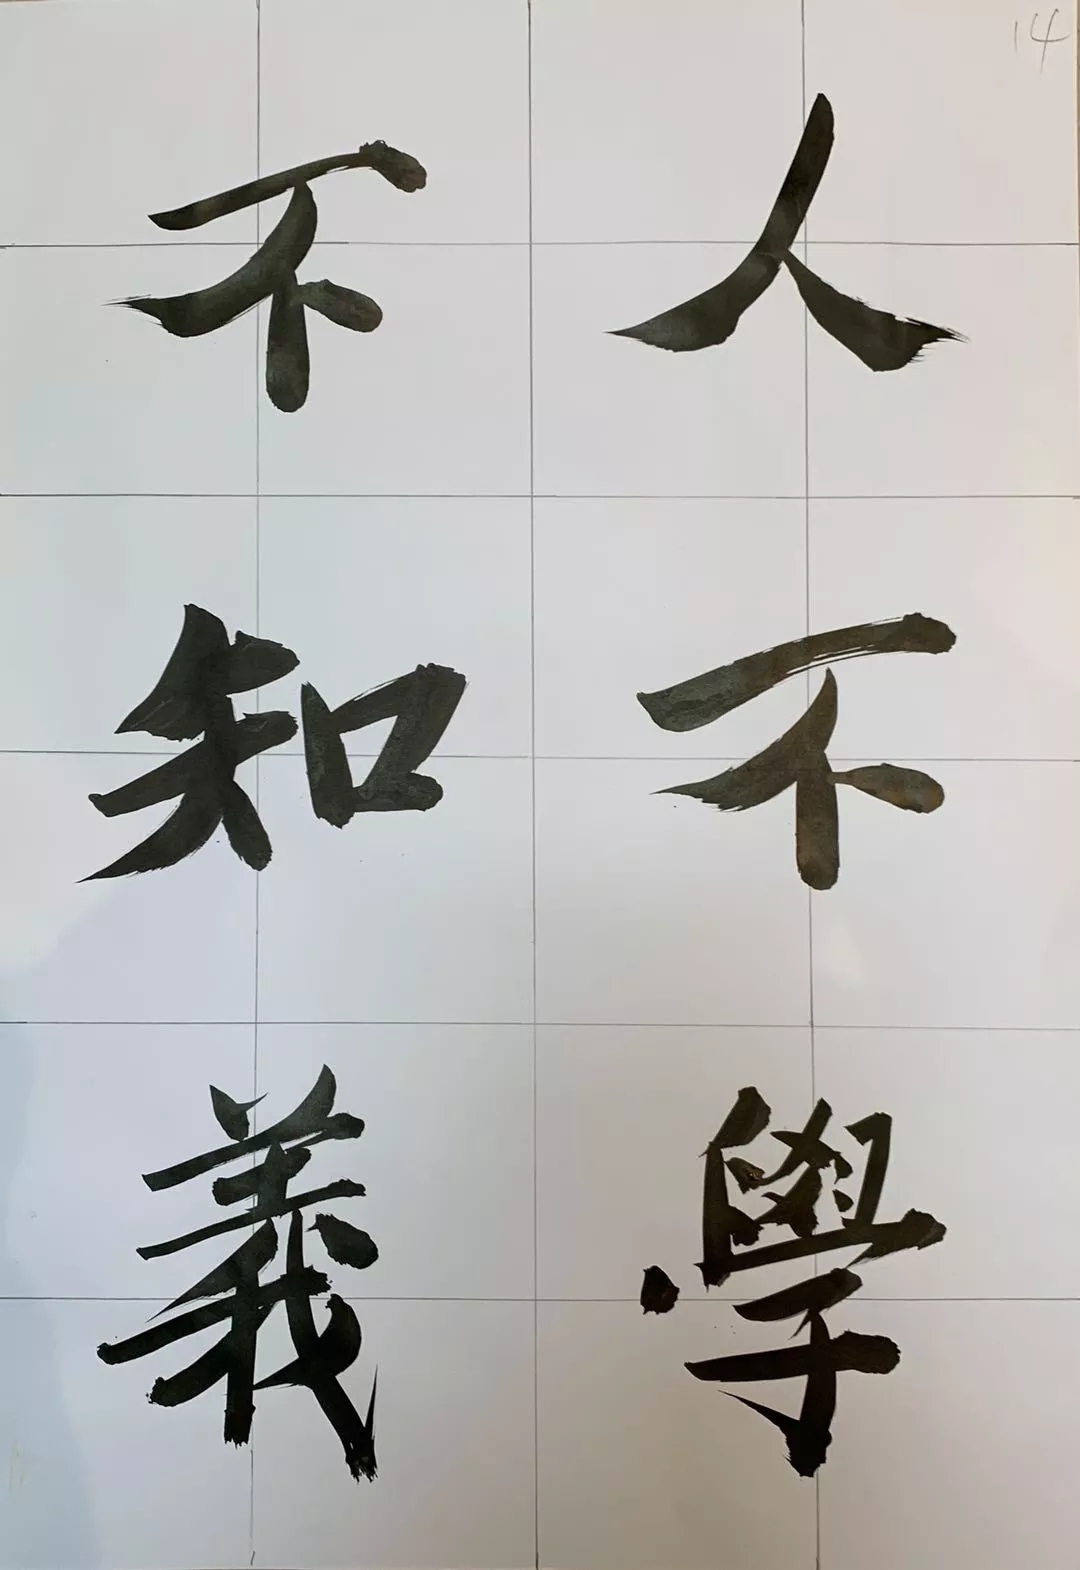 14
人不學
不知義